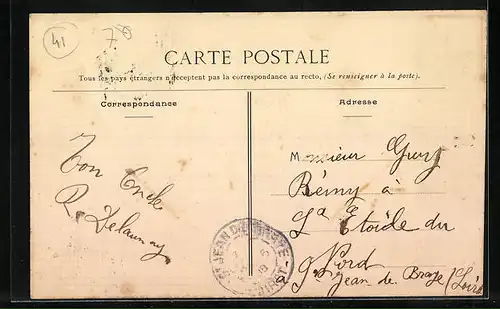 41
70
CARTE POSTALE
Tous les pays étrangers n'acceptent pas la correspondance au recto, (Se renseigner à la poste).
Correspondance
Adresse
Ton Oncle
R. Delaunay
Monsieur
Rémy à
L'a Etoide du
Nord à
St Jean de Braye (Loiret
ST JEAN DE BRAYE